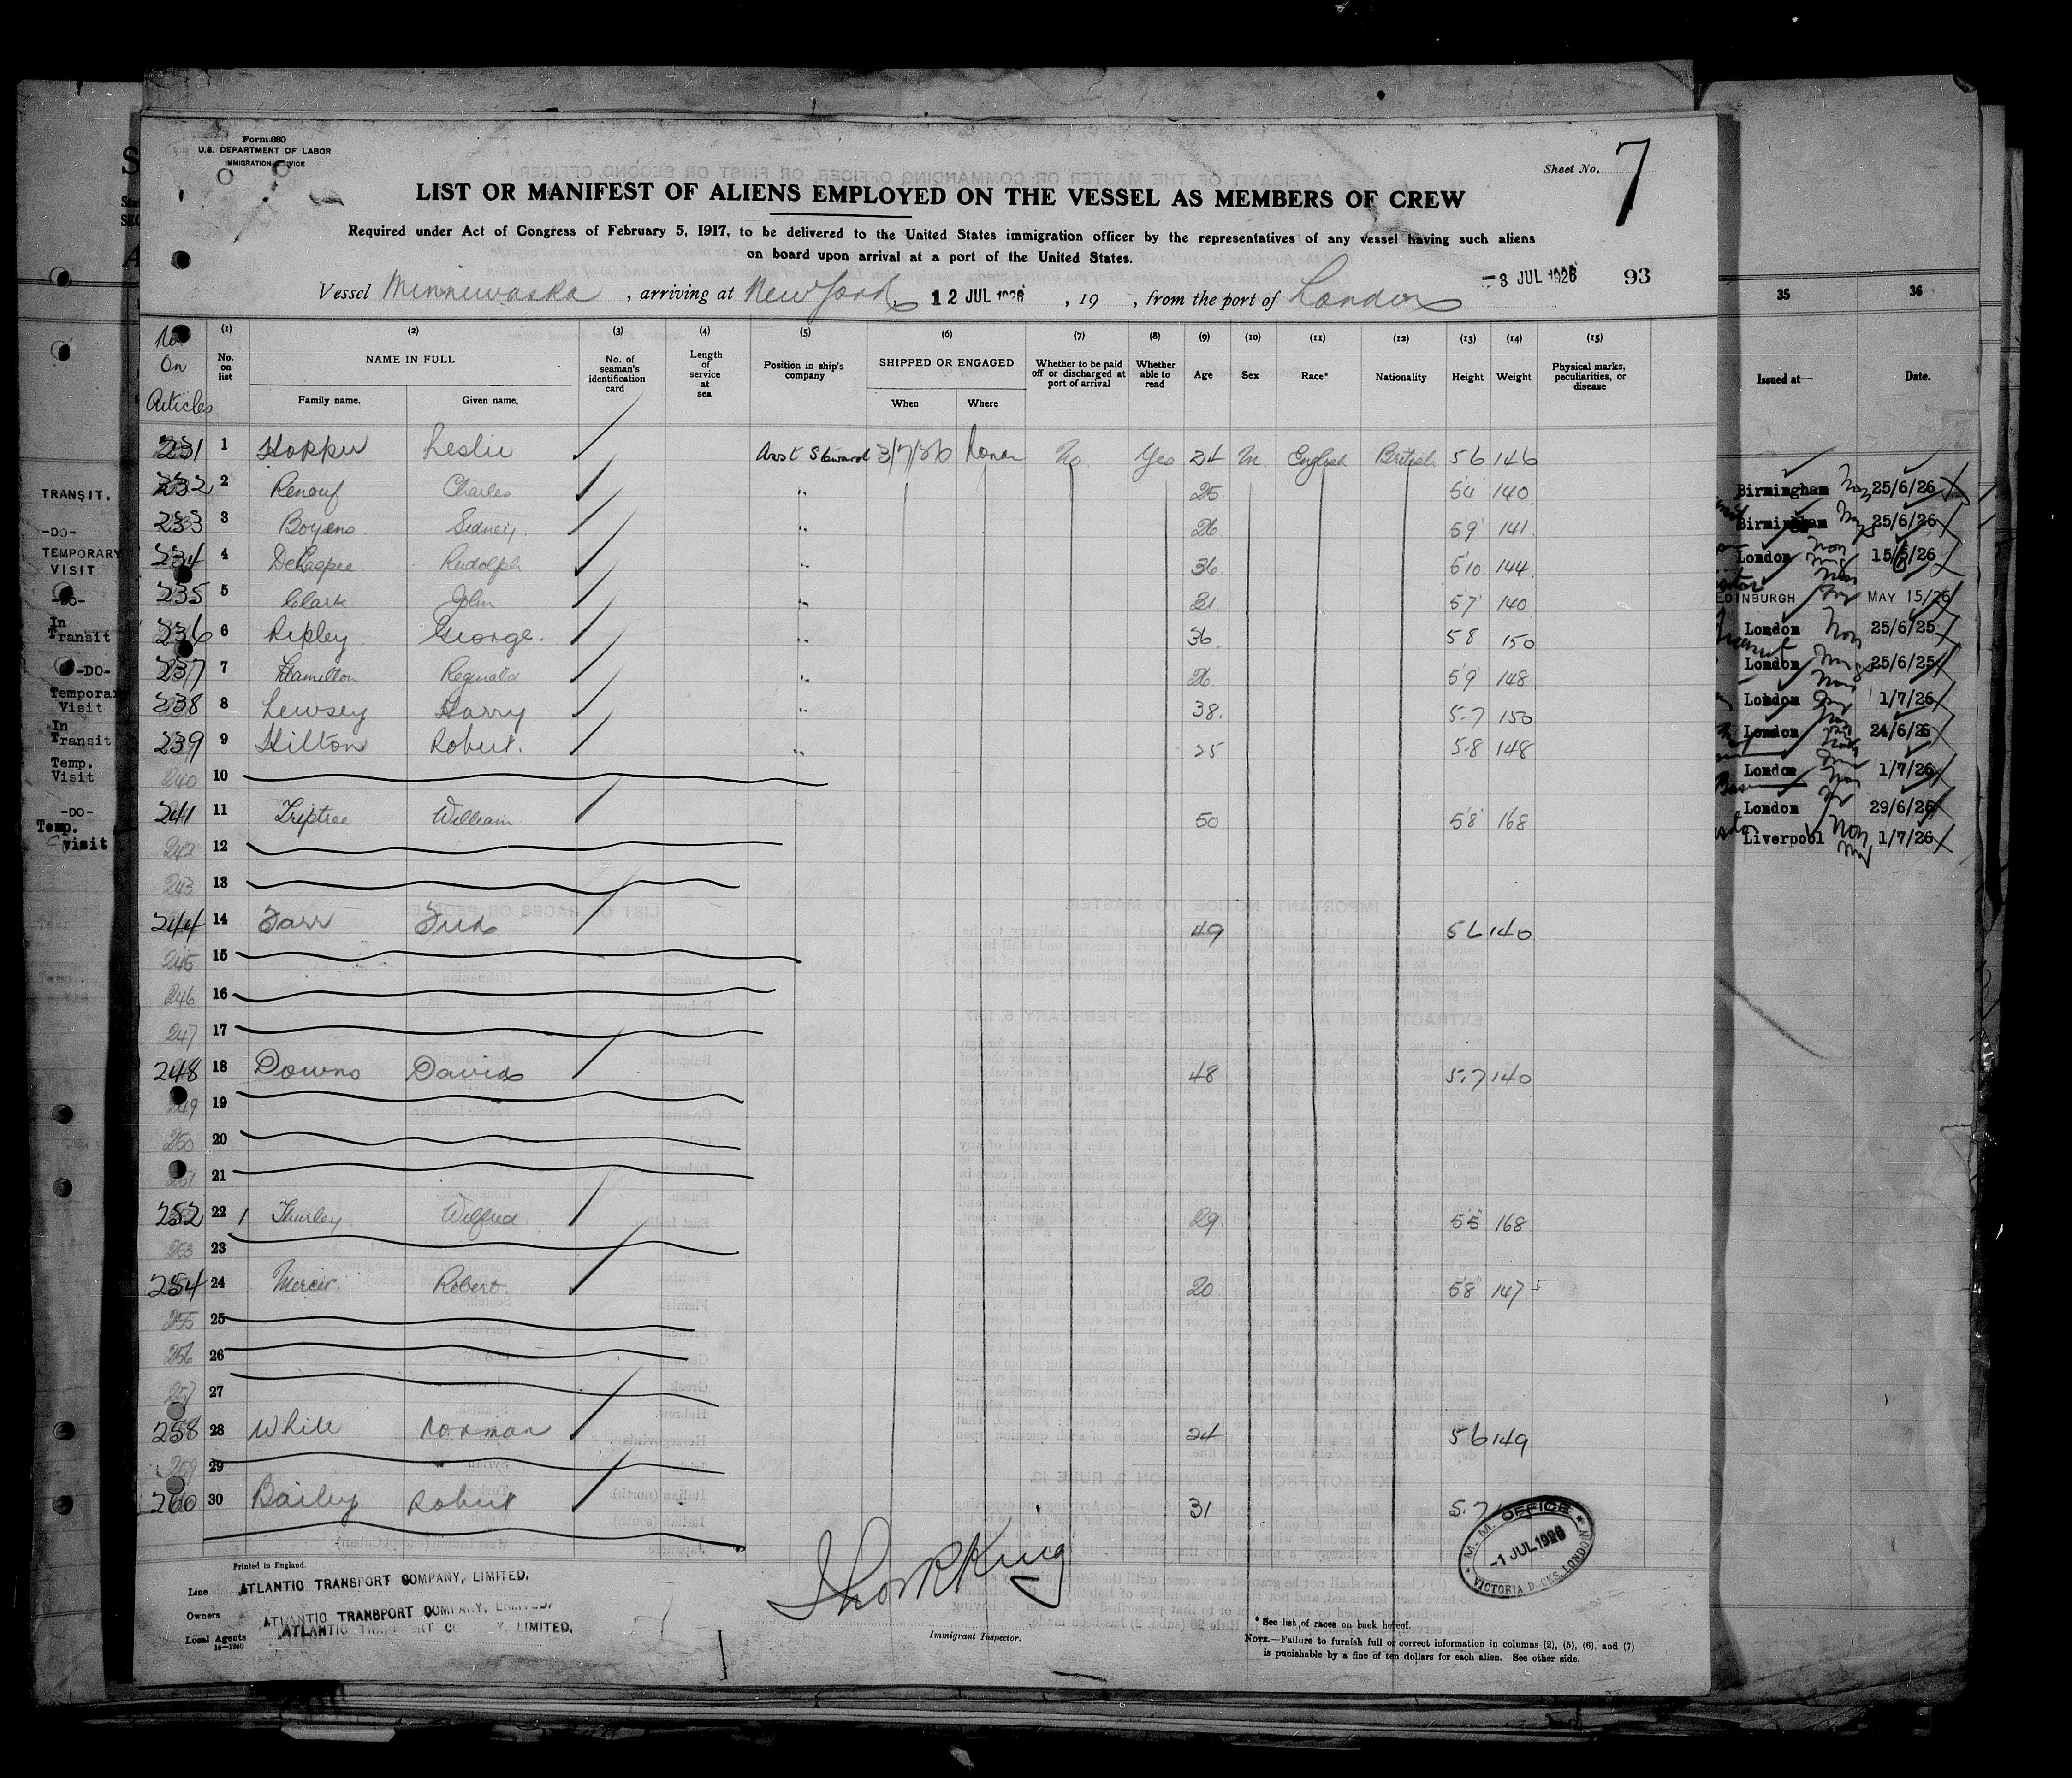 Form 680
U.S. DEPARTMENT OF LABOR
IMMIGRATION SERVICE
Sheet No. 7
LIST OR MANIFEST OF ALIENS EMPLOYED ON THE VESSEL AS MEMBERS OF CREW
Required under Act of Congress of February 5, 1917, to be delivered to the United States immigration officer by the representatives of any vessel having such aliens
on board upon arrival at a port of the United States.
-3 JUL 1926 93
Vessel Minnewaska, arriving at New York, 12 JUL 1926, 19 , from the port of London
No. On Articles
(1) No. on list
(2) NAME IN FULL
Family name. Given name.
(3) No. of seaman's identification card
(4) Length of service at sea
(5) Position in ship's company
(6) SHIPPED OR ENGAGED
When Where
(7) Whether to be paid off or discharged at port of arrival
(8) Whether able to read
(9) Age
(10) Sex
(11) Race*
(12) Nationality
(13) Height
(14) Weight
(15) Physical marks, peculiarities, or disease
231 1 Hopper Leslie Asst Steward 3/7/26 London No Yes 24 M English British 5 6 146
232 2 Renouf Charles " 25 5'4" 140
233 3 Boyens Sidney " 26 5'9" 141
234 4 Rudolph " 36 5'10" 144
235 5 Clark John " 31 5'7" 140
236 6 Ripley George " 36 5 8 150
237 7 Hamilton Reginald " 26 5'9" 148
238 8 Lewsey Harry " 38 5-7 150
239 9 Hilton Robert " 25 5-8 148
240 10
241 11 Triptree William 50 5'8" 168
242 12
243 13
244 14 Farr Fred 49 5 6 140
245 15
246 16
247 17
248 18 Downs David 48 5.7 140
249 19
250 20
251 21
252 22 Thurley Wilfred 29 5'5" 168
253 23
254 24 Mercer Robert 20 5'8" 147
255 25
256 26
257 27
258 28 White Norman 24 5 6 149
259 29
260 30 Bailey Robert 31 5.7
Printed in England.
Line ATLANTIC TRANSPORT COMPANY, LIMITED.
Owners ATLANTIC TRANSPORT COMPANY, LIMITED.
Local Agents ATLANTIC TRANSPORT COMPANY, LIMITED.
14-1240
Immigrant Inspector.
M. M. OFFICE
-1 JUL 1926
VICTORIA DOCKS, LONDON
* See list of races on back hereof.
NOTE.—Failure to furnish full or correct information in columns (2), (5), (6), and (7)
is punishable by a fine of ten dollars for each alien. See other side.
TRANSIT.
-DO-
TEMPORARY
VISIT
-DO-
In
Transit
-DO-
Temporary
Visit
In
Transit
Temp.
Visit
-DO-
Temp.
Visit
35 36
Issued at— Date.
Birmingham 25/6/26
Birmingham 25/6/26
London 15/6/26
EDINBURGH MAY 15/26
London 25/6/25
London 25/6/25
London 1/7/26
London 24/6/26
London 1/7/26
London 29/6/26
Liverpool 1/7/26